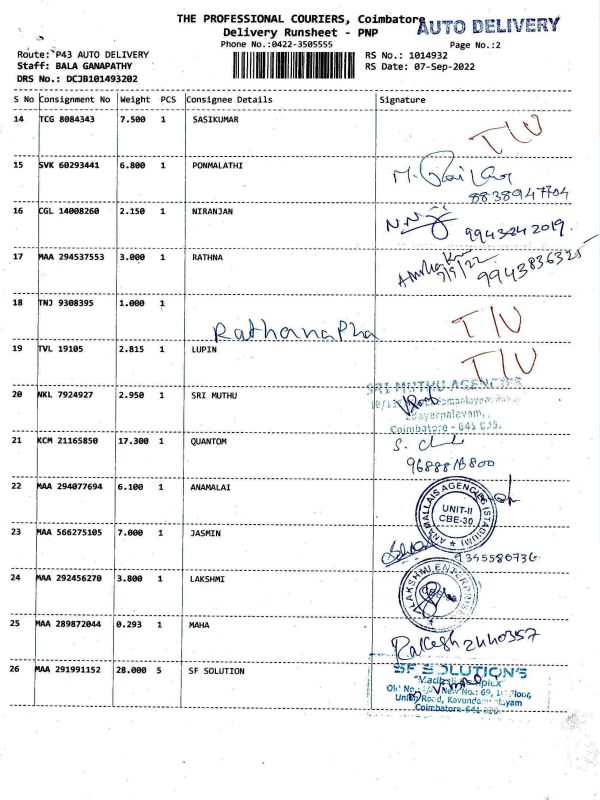 THE PROFESSIONAL COURIERS, Coimbatore
AUTO DELIVERY
Delivery Runsheet - PNP
Phone No.:0422-3505555
Page No.:2
Route: P43 AUTO DELIVERY
RS No.: 1014932
Staff: BALA GANAPATHY
RS Date: 07-Sep-2022
DRS No.: DCJB101493202
S No Consignment No Weight PCS Consignee Details Signature
14 TCG 8084343 7.500 1 SASIKUMAR
T/U
15 SVK 60293441 6.800 1 PONMALATHI
8838947704
16 CGL 14008260 2.150 1 NIRANJAN
9943242019.
17 MAA 294537553 3.000 1 RATHNA
7/9/22
9943836325
18 TNJ 9308395 1.000 1
Rathanapha
T/U
19 TVL 19105 2.815 1 LUPIN
T/U
20 NKL 7924927 2.950 1 SRI MUTHU
SRI MUTHU AGENCIES
Coimbatore - 641
21 KCM 21165850 17.300 1 QUANTOM
9688818800
22 MAA 294077694 6.100 1 ANAMALAI
ANAMALLAIS AGENCIES (STADIUM)
UNIT-II
CBE-30
23 MAA 566275105 7.000 1 JASMIN
9345580736
24 MAA 292456270 3.800 1 LAKSHMI
LAKSHMI ENTERPRISES
25 MAA 289872044 0.293 1 MAHA
Rakesh 2440357
26 MAA 291991152 28.000 5 SF SOLUTION
SF SOLUTION'S
New No.: 69, Floor,
Road,
Coimbatore-641